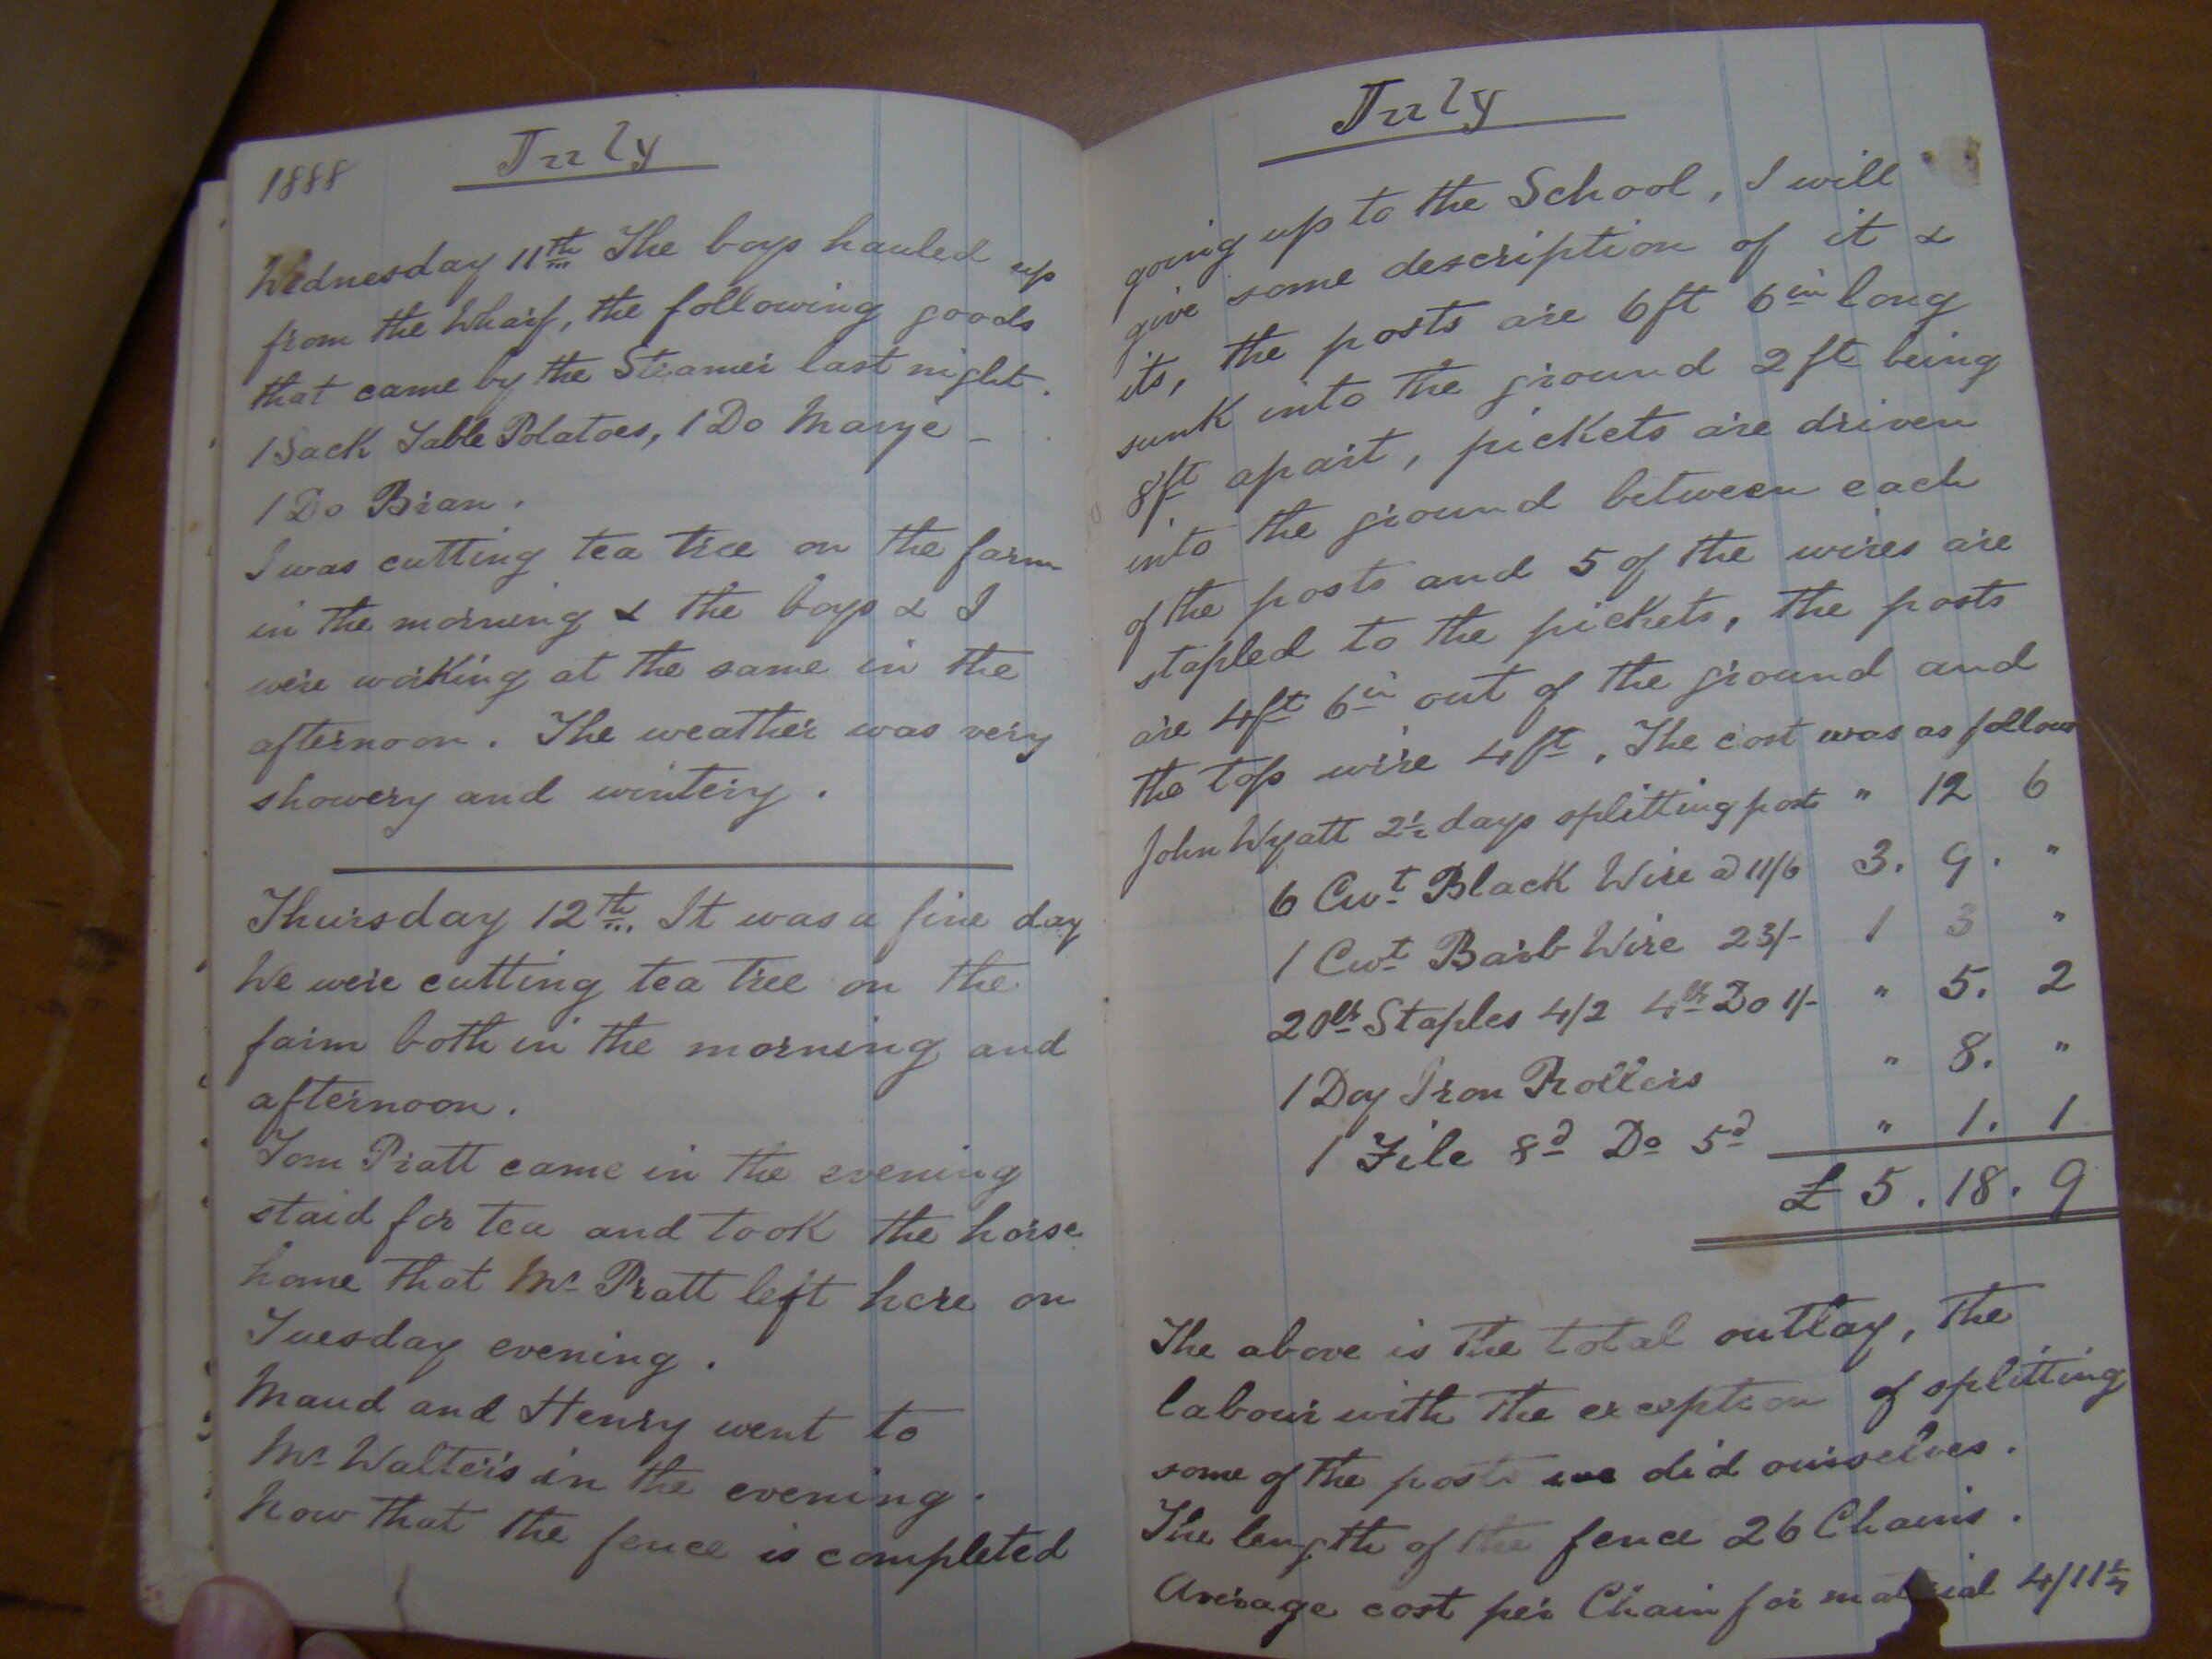 1888
July
Wednesday 11th The boys hauled up
from the Wharf, the following goods
that came by the Steamer last night.
1 Sack Table Potatoes, 1 Do
1 Do Bran.
I was cutting tea tree on the farm
in the morning & the boys & I
were working at the same in the
afternoon. The weather was very
showery and wintery.
Thursday 12th. It was a fine day
We were cutting tea tree on the
farm both in the morning and
afternoon.
Tom Pratt came in the evening
staid for tea and took the horse
home that Mr Pratt left here on
Tuesday evening.
Maud and Henry went to
Mr Walters in the evening.
Now that the fence is completed
July
going up to the School, I will
give some description of it &
its, the posts are 6ft 6in long
sunk into the ground 2ft being
8ft apart, pickets are driven
into the ground between each
of the posts and 5 of the wires are
stapled to the pickets, the posts
are 4ft 6in out of the ground and
the top wire 4ft. The cost was as follows
John Wyatt 2½ days splitting posts " 12 6
6 Cwt Black Wire @ 11/6 3. 9. "
1 Cwt Barb Wire 23/- 1 3 "
20lb Staples 4/2 4lb Do 1/- " 5. 2
1 Doz Iron Rollers " 8. "
1 File 8d Do 5d " 1. 1
£ 5. 18. 9
The above is the total outlay, the
labour with the exception of splitting
some of the posts we did ourselves.
The length of the fence 26 Chains.
Average cost per Chain for material 4/11½